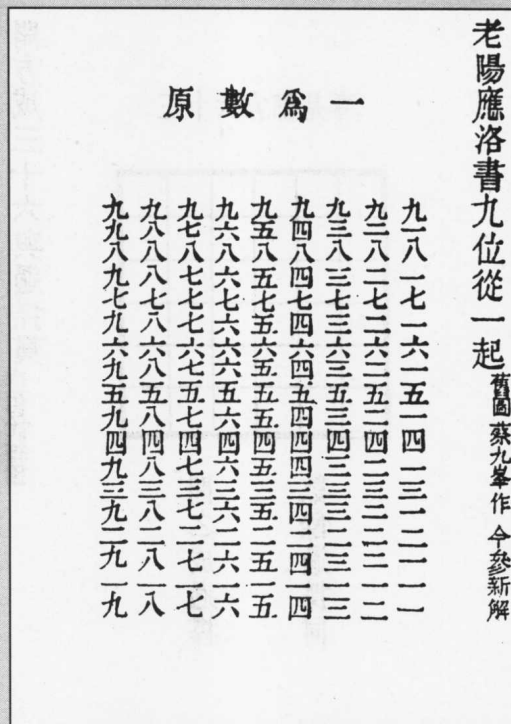 老陽應洛書九位從一起 舊圖 蔡九峯作 今叅新解
一爲數原
九一八一七一六一五一四一三一二一一一
九二八二七二六二五二四二三二二二一二
九三八三七三六三五三四三三三二三一三
九四八四七四六四五四四四三四二四一四
九五八五七五六五五五四五三五二五一五
九六八六七六六六五六四六三六二六一六
九七八七七七六七五七四七三七二七一七
九八八八七八六八五八四八三八二八一八
九九八九七九六九五九四九三九二九一九